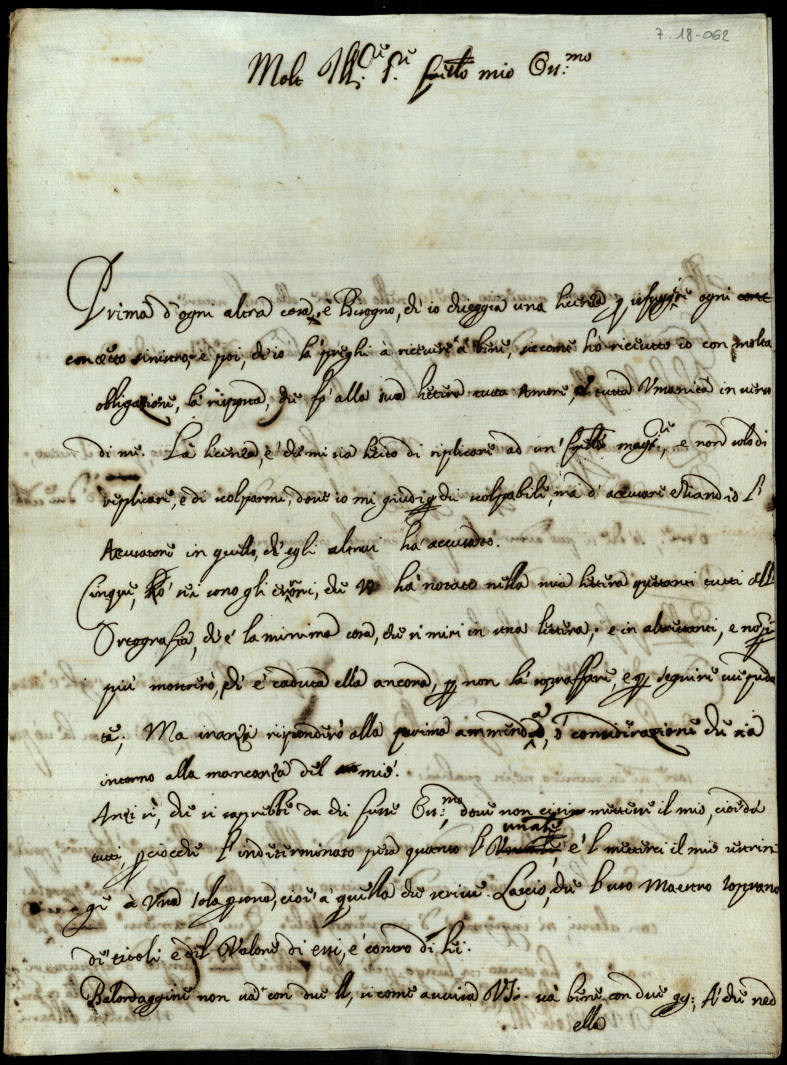 7.18-062
Molt Ill.re S.re fratello mio Oss.mo
Prima d'ogni altra cosa, è bisogno, ch'io chieggia una licenza ogni
concetto sinistro, e poi, ch'io la preghi à ricevere à bene, siccome hò ricevuto io con molta
obligazione, la risposta, che fà alla sua lettera tutta Amore, e tutta Umanità in verso
di me. La licenza, è che mi sia lecito di replicare ad un' e non solo di
replicare, e di scolparmi, dove io mi giudico scolpabile, mà d'accusare etiandio l'
Accusatore in quello, ch'egli altrui hà accusato.
Cinque, sono gli errori, che hà notato nella mia lettera tutti all'
Ortografia, ch'è la minima cosa, che si miri in una lettera; e in altretanti, e
più mostrerò, ch'è caduta ella ancora, p non la sopraffare, e p seguire
Ma inanzi risponderò alla prima ammenda, ò considerazione che sia
intorno alla mancanza del mio.
Anzi sì, che si saprebbe da chi fusse Oss.mo, dove non mettere il mio, cioè da
tutti, pciocche l'indeterminato pesa quanto l' e 'l metterci il mio
a Una sola psona, cioè a quella che scrive. Lascio, che l'uso Maestro soprano
de' titoli e del Valore di essi, è contro di lei.
Balordaggine non và con due ll, si come avvisa VS. và bene con due gg; A' che
ella